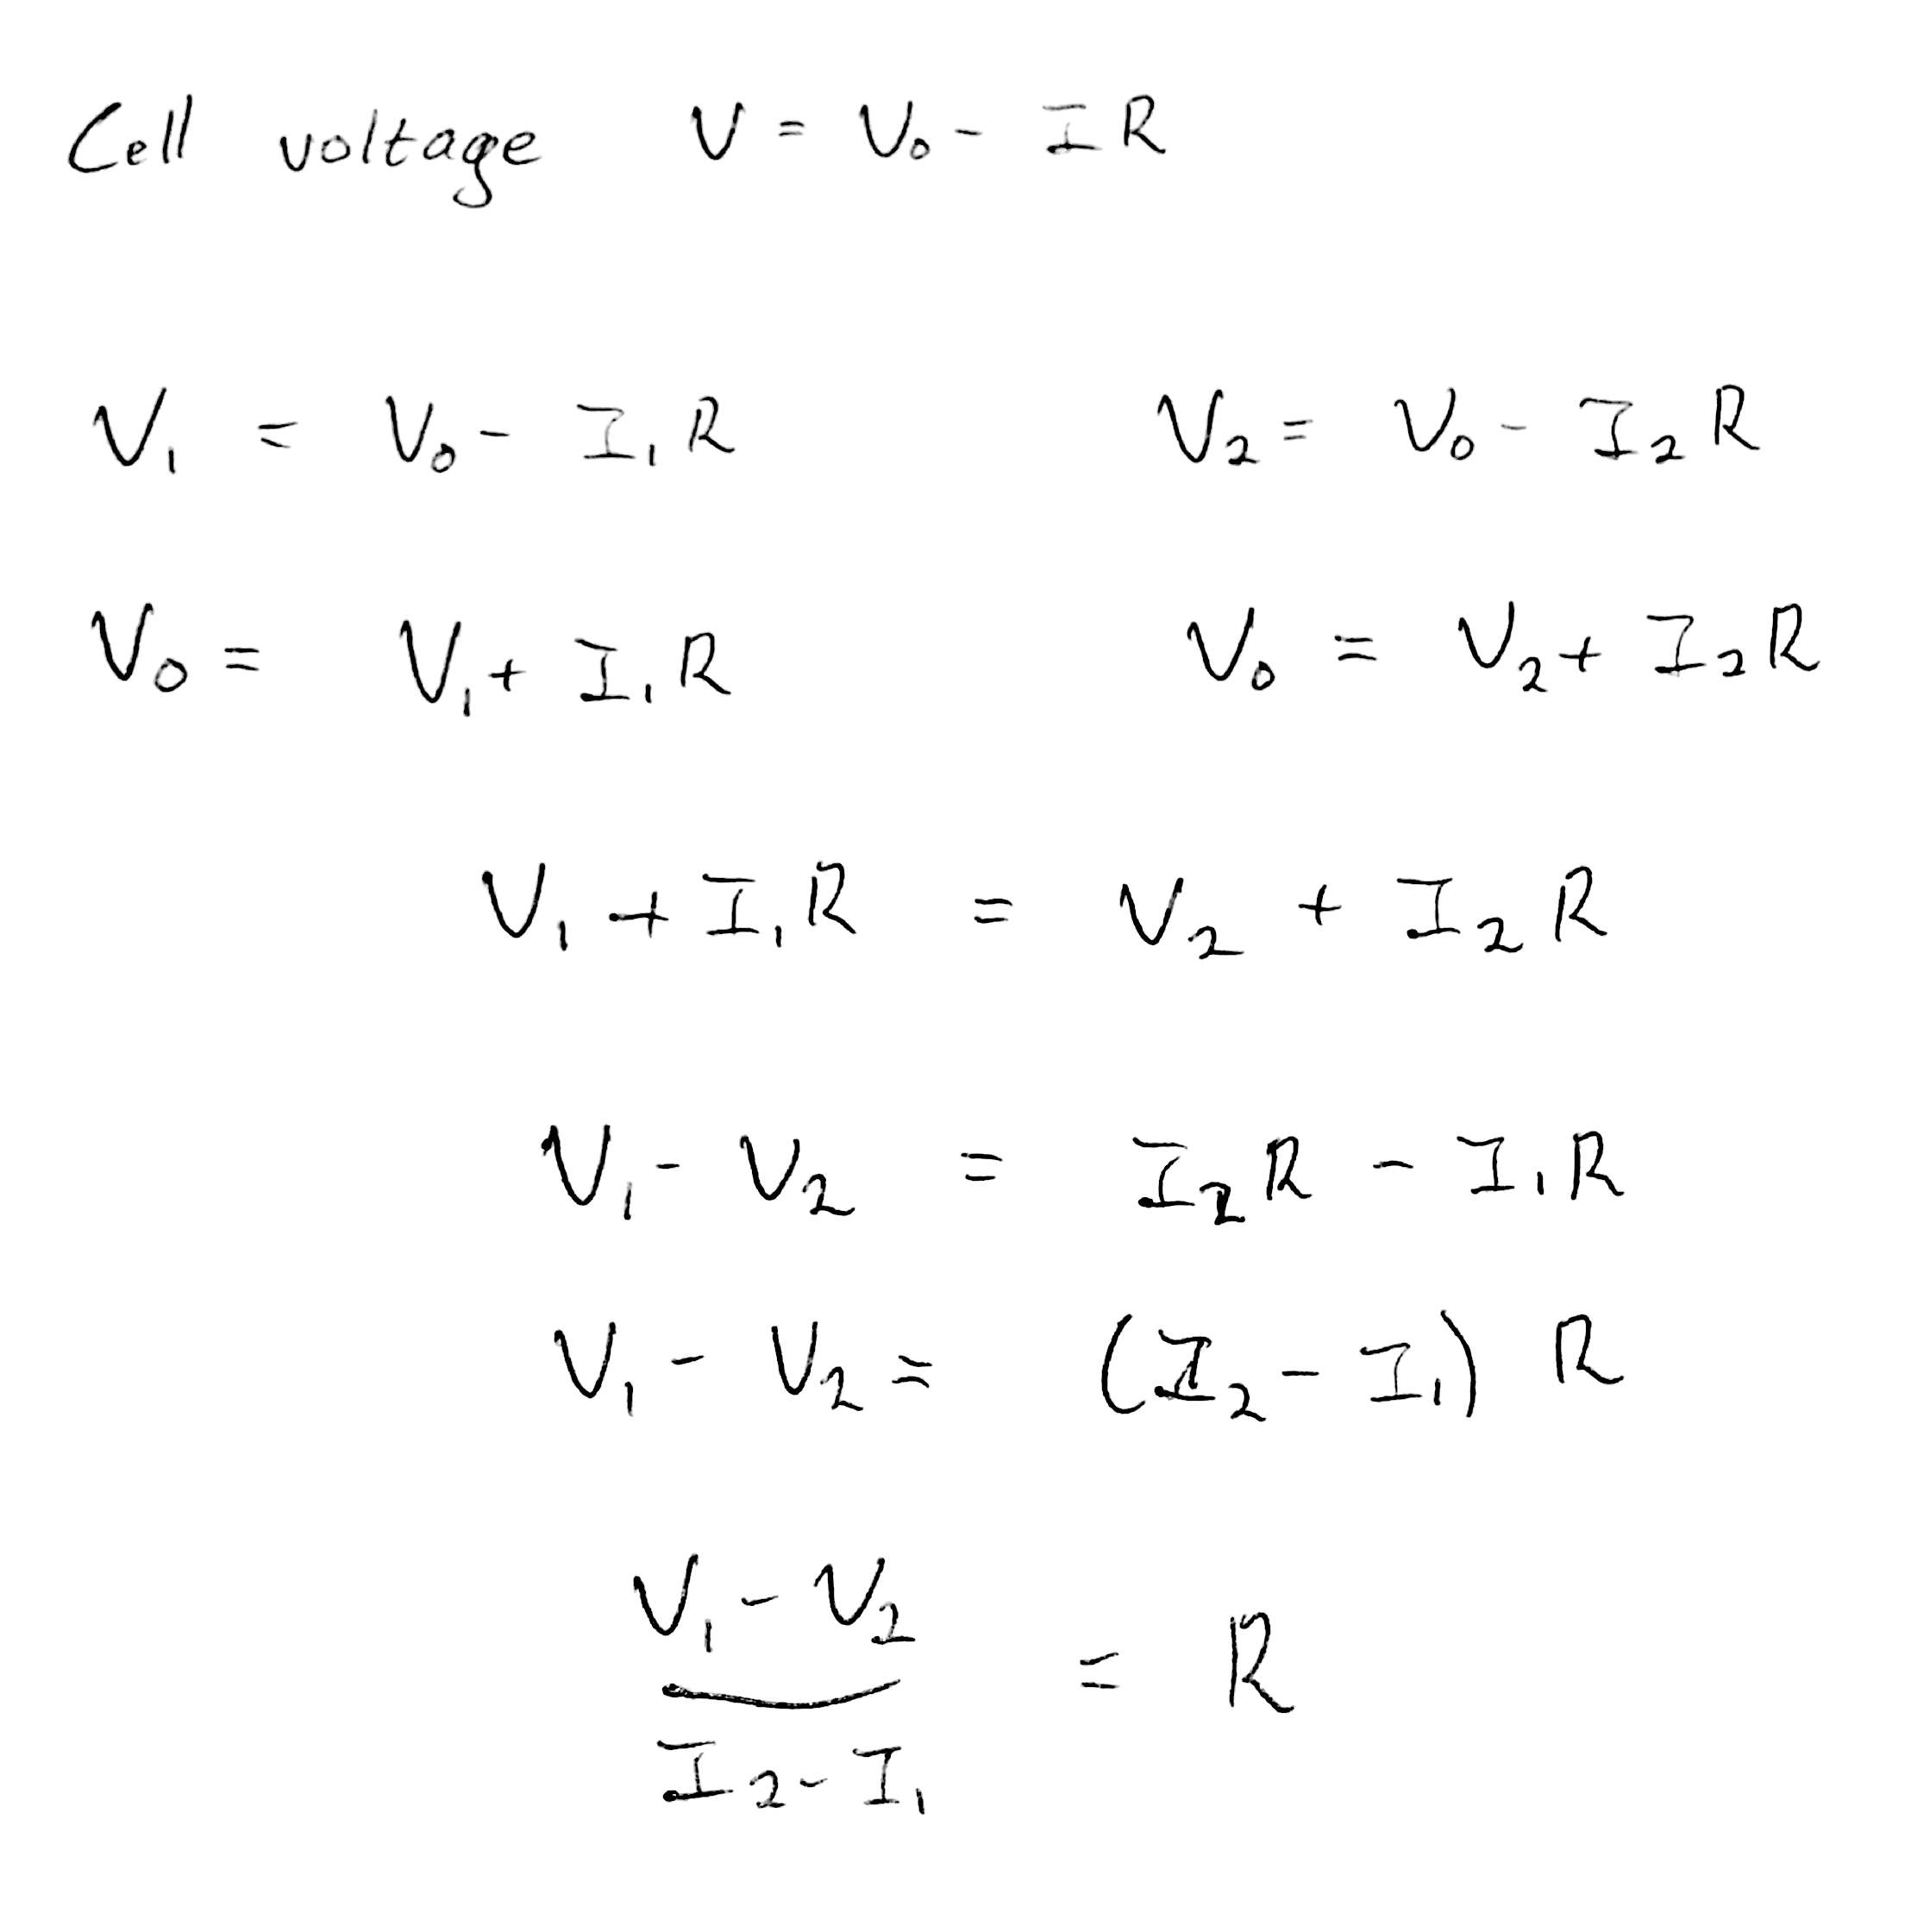 Cell voltage V = V₀ - I R
V₁ = V₀ - I₁ R V₂ = V₀ - I₂ R
V₀ = V₁ + I₁ R V₀ = V₂ + I₂ R
V₁ + I₁ R = V₂ + I₂ R
V₁ - V₂ = I₂ R - I₁ R
V₁ - V₂ = (I₂ - I₁) R
V₁ - V₂
= R
I₂ - I₁